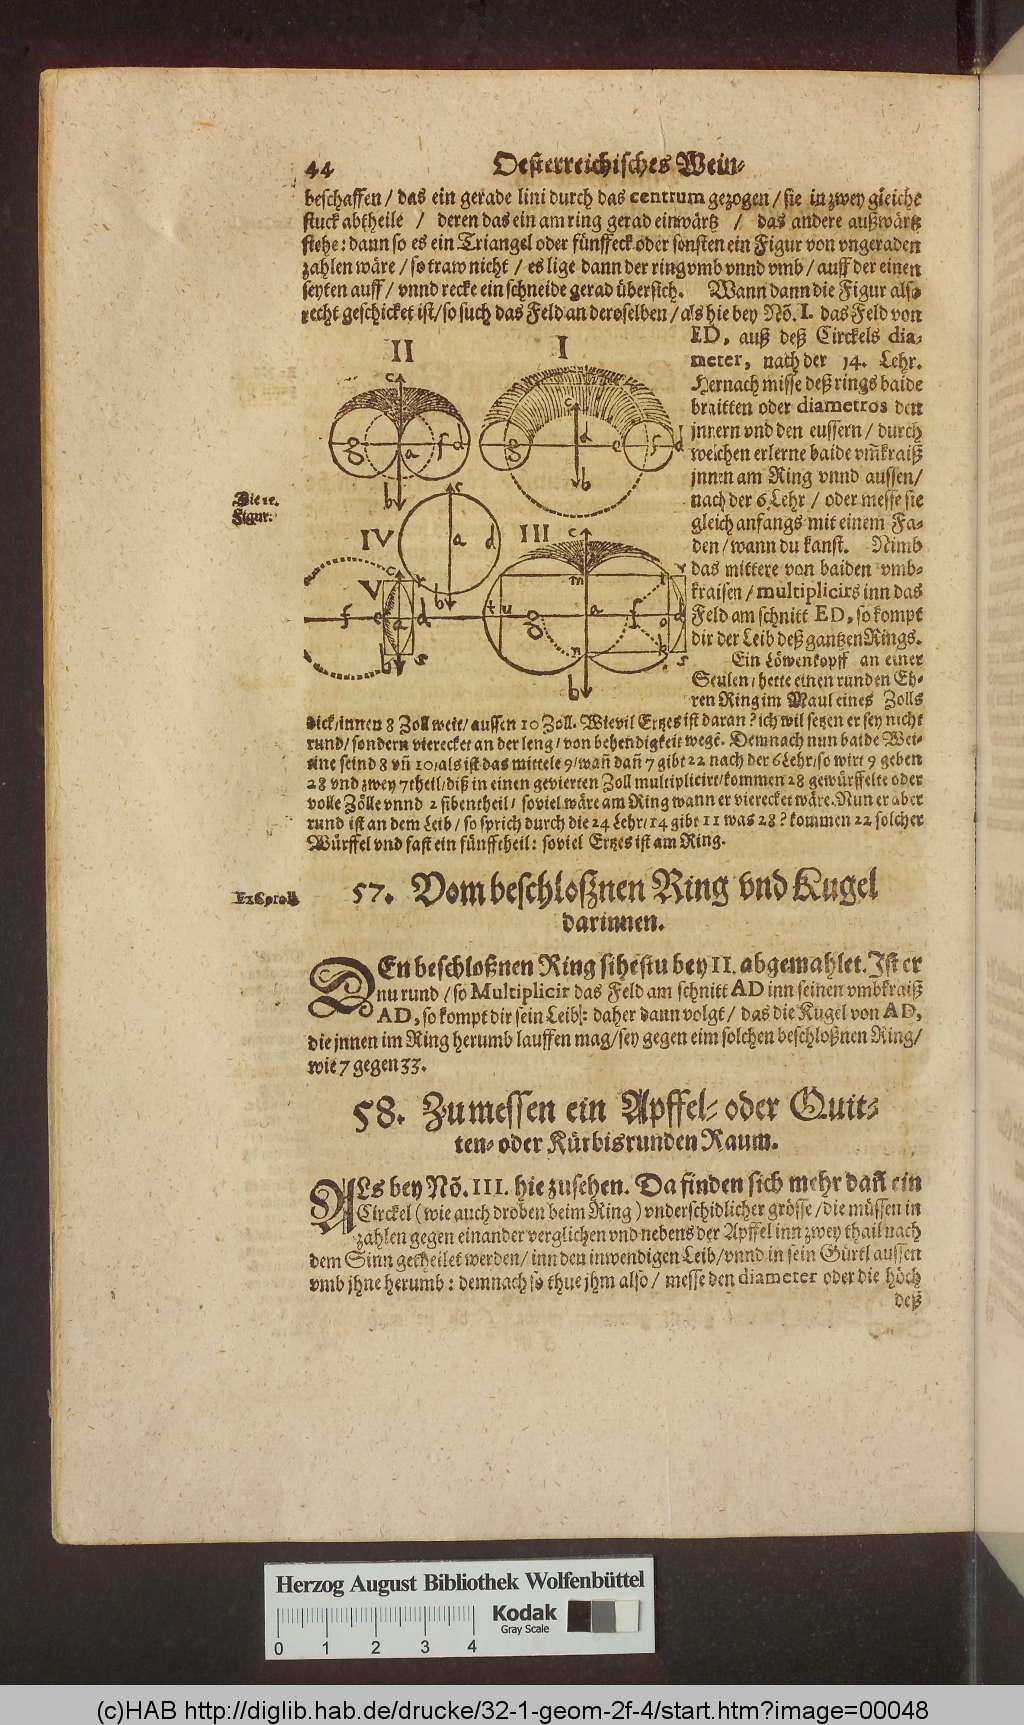 44
Oesterreichisches Wein-
beschaffen / das ein gerade lini durch das centrum gezogen / sie in zwey gleiche
stuck abtheile / deren das ein am ring gerad einwärtz / das andere außwärtz
stehe: dann so es ein Triangel oder fünffeck oder sonsten ein Figur von vngeraden
zahlen wäre / so traw nicht / es lige dann der ring vmb vnnd vmb / auff der einen
seyten auff / vnnd recke ein schneide gerad übersich. Wann dann die Figur also
recht geschicket ist / so such das Feld an derselben / als hie bey Nõ. I. das Feld von
ED, auß deß Circkels dia-
meter, nach der 14. Lehr.
Hernach misse deß rings baide
braitten oder diametros den
jnnern vnd den eussern / durch
welchen erlerne baide vm̃kraiß
jnnen am Ring vnnd aussen /
nach der 6 Lehr / oder messe sie
gleich anfangs mit einem Fa-
den / wann du kanst. Nimb
das mittere von baiden vmb-
kraisen / multiplicirs inn das
Feld am schnitt ED, so kompt
dir der Leib deß gantzen Rings.
Ein Löwenkopff an einer
Seulen / hette einen runden Eh-
ren Ring im Maul eines Zolls
dick / innen 8 Zoll weit / aussen 10 Zoll. Wievil Ertzes ist daran? ich wil setzen er sey nicht
rund / sondern vierecket an der leng / von behendigkeit wegẽ. Demnach nun baide Wei-
tine seind 8 vñ 10 / als ist das mittele 9 / wañ dañ 7 gibt 22 nach der 6 Lehr / so wirt 9 geben
28 vnd zwey 7theil / diß in einen gevierten Zoll multiplicirt / kommen 28 gewürffelte oder
volle Zölle vnnd 2 sibentheil / soviel wäre am Ring wann er vierecket wäre. Nun er aber
rund ist an dem Leib / so sprich durch die 24 Lehr / 14 gibt 11 was 28? kommen 22 solcher
Würffel vnd fast ein fünfftheil: soviel Ertzes ist am Ring.
II
I
c
g
a
f
d
b
c
d
g
e
f
d
b
Die 12.
Figur.
IV
c
a
d
b
III
c
m
l
r
t
u
g
a
f
o
d
n
k
s
b
V
c
r
f
e
a
d
b
s
57. Vom beschloßnen Ring vnd Kugel
darinnen.
DEn beschloßnen Ring sihestu bey II. abgemahlet. Jst er
nu rund / so Multiplicir das Feld am schnitt AD inn seinen vmbkraiß
AD, so kompt dir sein Leib: daher dann volgt / das die Kugel von AD,
die jnnen im Ring herumb lauffen mag / sey gegen eim solchen beschloßnen Ring /
wie 7 gegen 33.
58. Zu messen ein Apffel- oder Quit-
ten- oder Kürbisrunden Raum.
ALs bey Nõ. III. hie zusehen. Da finden sich mehr dañ ein
Circkel (wie auch droben beim Ring) vnderschidlicher grösse / die müssen in
zahlen gegen einander verglichen vnd nebens der Apffel inn zwey thail nach
dem Sinn getheilet werden / inn den inwendigen Leib / vnnd in sein Gürtl aussen
vmb jhne herumb: demnach so thue jhm also / messe den diameter oder die höch
deß
Herzog August Bibliothek Wolfenbüttel
0 1 2 3 4
Kodak
Gray Scale
(c)HAB http://diglib.hab.de/drucke/32-1-geom-2f-4/start.htm?image=00048